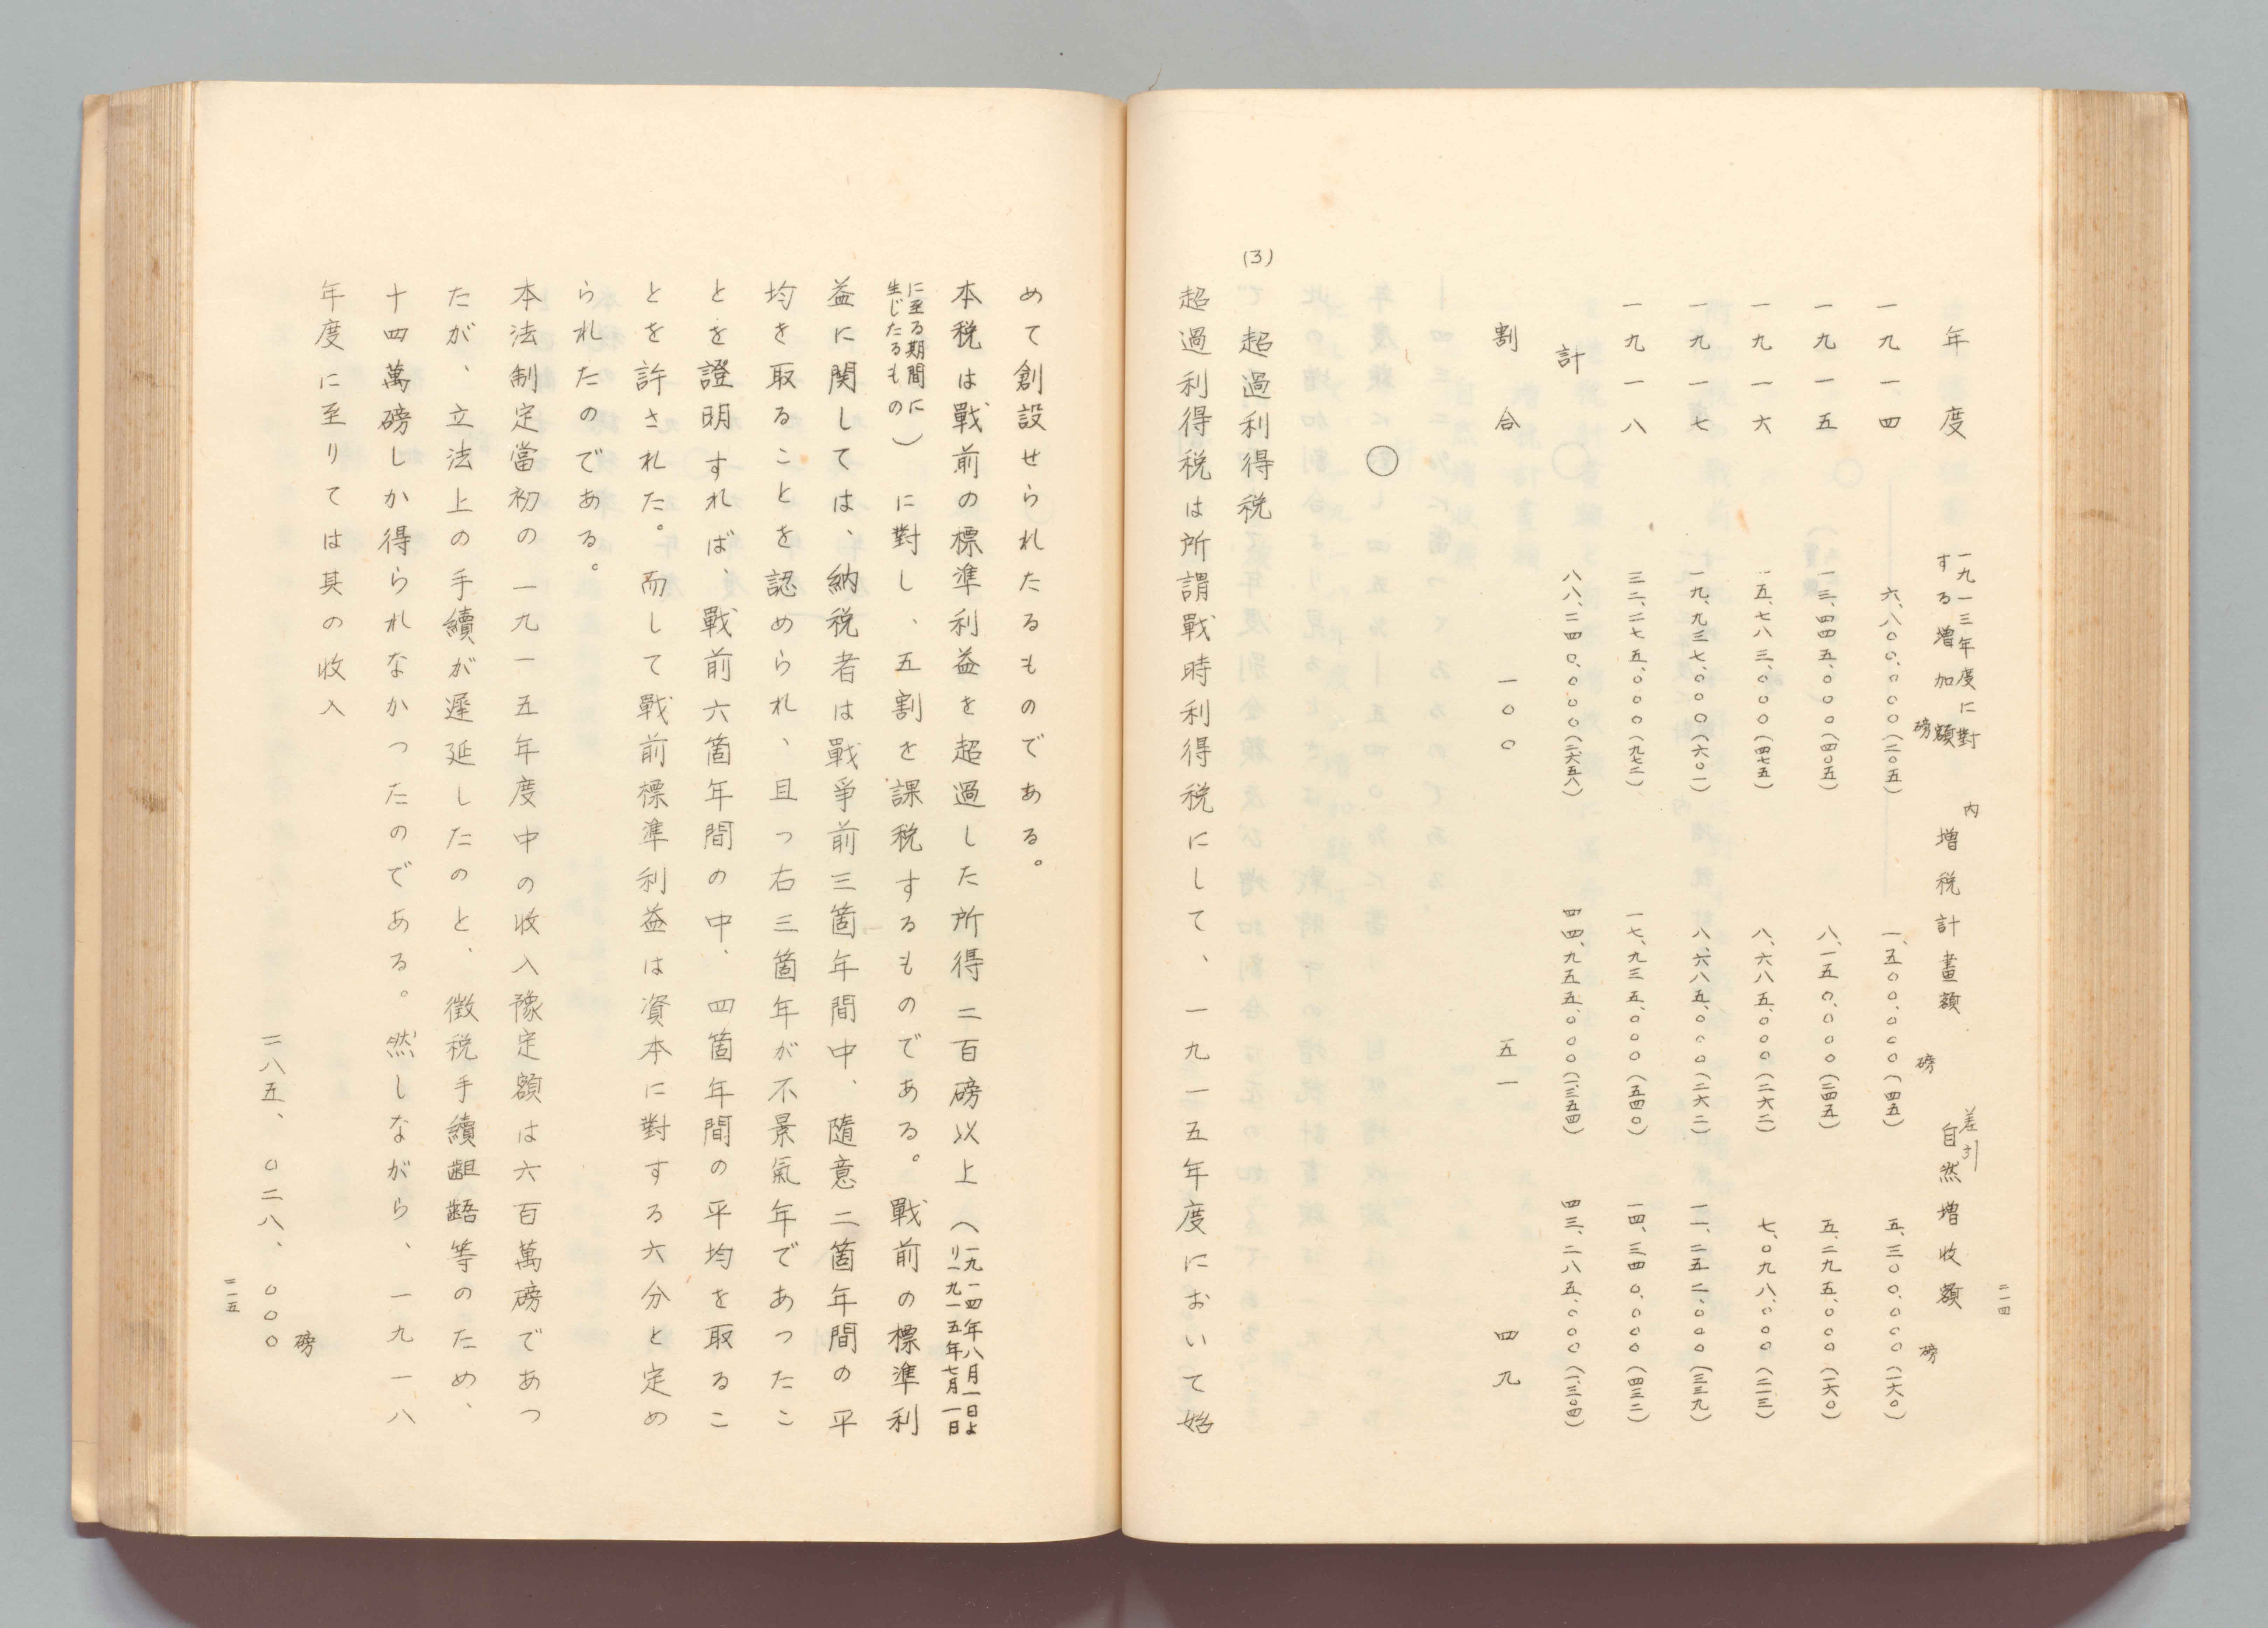 二一四
年度　一九一三年度に對する増加額　磅　内　増税計畫額　磅　差引　自然増收額　磅
一九一四　六、八〇〇、〇〇〇（二〇五）　一、五〇〇、〇〇〇（四五）　五、三〇〇、〇〇〇（一六〇）
一九一五　一三、四四五、〇〇〇（四〇五）　八、一五〇、〇〇〇（二四五）　五、二九五、〇〇〇（一六〇）
一九一六　一五、七八三、〇〇〇（四七五）　八、六八五、〇〇〇（二六二）　七、〇九八、〇〇〇（二一三）
一九一七　一九、九三七、〇〇〇（六〇一）　八、六八五、〇〇〇（二六二）　一一、二五二、〇〇〇（三三九）
一九一八　三二、二七五、〇〇〇（九七二）　一七、九三五、〇〇〇（五四〇）　一四、三四〇、〇〇〇（四三二）
計　八八、二四〇、〇〇〇（二六五八）　四四、九五五、〇〇〇（一三五四）　四三、二八五、〇〇〇（一三〇四）
割合　一〇〇　五一　四九
○
(3) 超過利得税
超過利得税は所謂戰時利得税にして、一九一五年度において始
めて創設せられたるものである。
本税は戰前の標準利益を超過した所得二百磅以上（一九一四年八月一日より一九一五年七月一日
に至る期間に生じたるもの）に對し、五割を課税するものである。戰前の標準利
益に関しては、納税者は戰爭前三箇年間中、隨意二箇年間の平
均を取ることを認められ、且つ右三箇年が不景氣年であつたこ
とを證明すれば、戰前六箇年間の中、四箇年間の平均を取るこ
とを許された。而して戰前標準利益は資本に對する六分と定め
られたのである。
本法制定當初の一九一五年度中の收入豫定額は六百萬磅であつ
たが、立法上の手續が遲延したのと、徴税手續齟齬等のため、
十四萬磅しか得られなかつたのである。然しながら、一九一八
年度に至りては其の收入
二八五、〇二八、〇〇〇磅
二一五